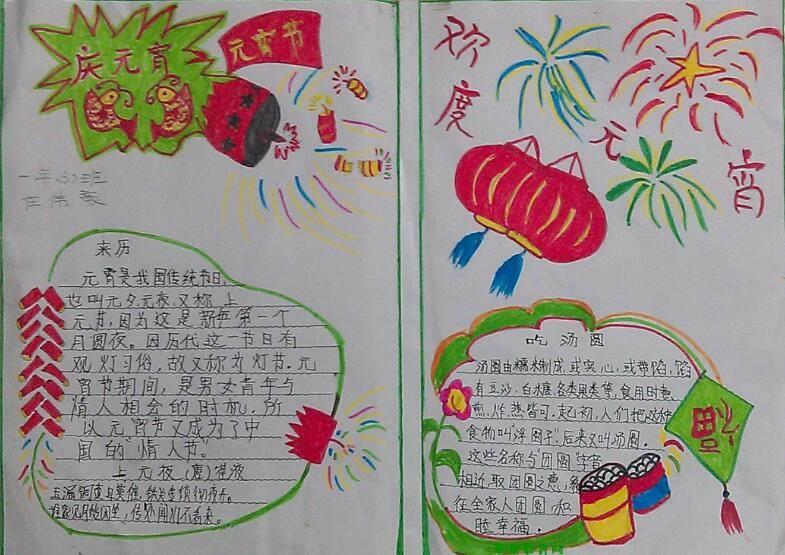 庆元宵
元宵节
一年(3)班
来历
元宵是我国传统节日,
也叫元夕元夜,又称上
元节,因为这是新年第一个
月圆夜。因历代这一节日有
观灯习俗,故又称为灯节.元
宵节期间,是男女青年与
情人相会的时机,所
以元宵节又成为了中
国的“情人节”。
上元夜(唐)崔液
玉漏铜壶且莫催,铁关金锁彻夜开。
谁家见月能闲坐,何处闻灯不看来。
欢度元宵
吃汤圆
汤圆由糯米制成,或实心,或带馅.馅
有豆沙.白糖.各类果类等,食用时煮.
煎.炸.蒸皆可.起初,人们把这种
食物叫“浮圆子”后来又叫汤圆.
这些名称与“团圆”字音
相近,取团圆之意,
在全家人团圆,和
睦幸福.
福